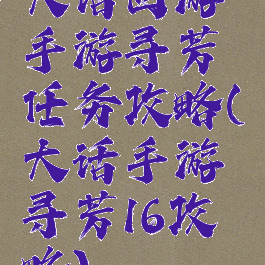 大话西游
手游寻芳
任务攻略(
大话手游
寻芳16攻
略)